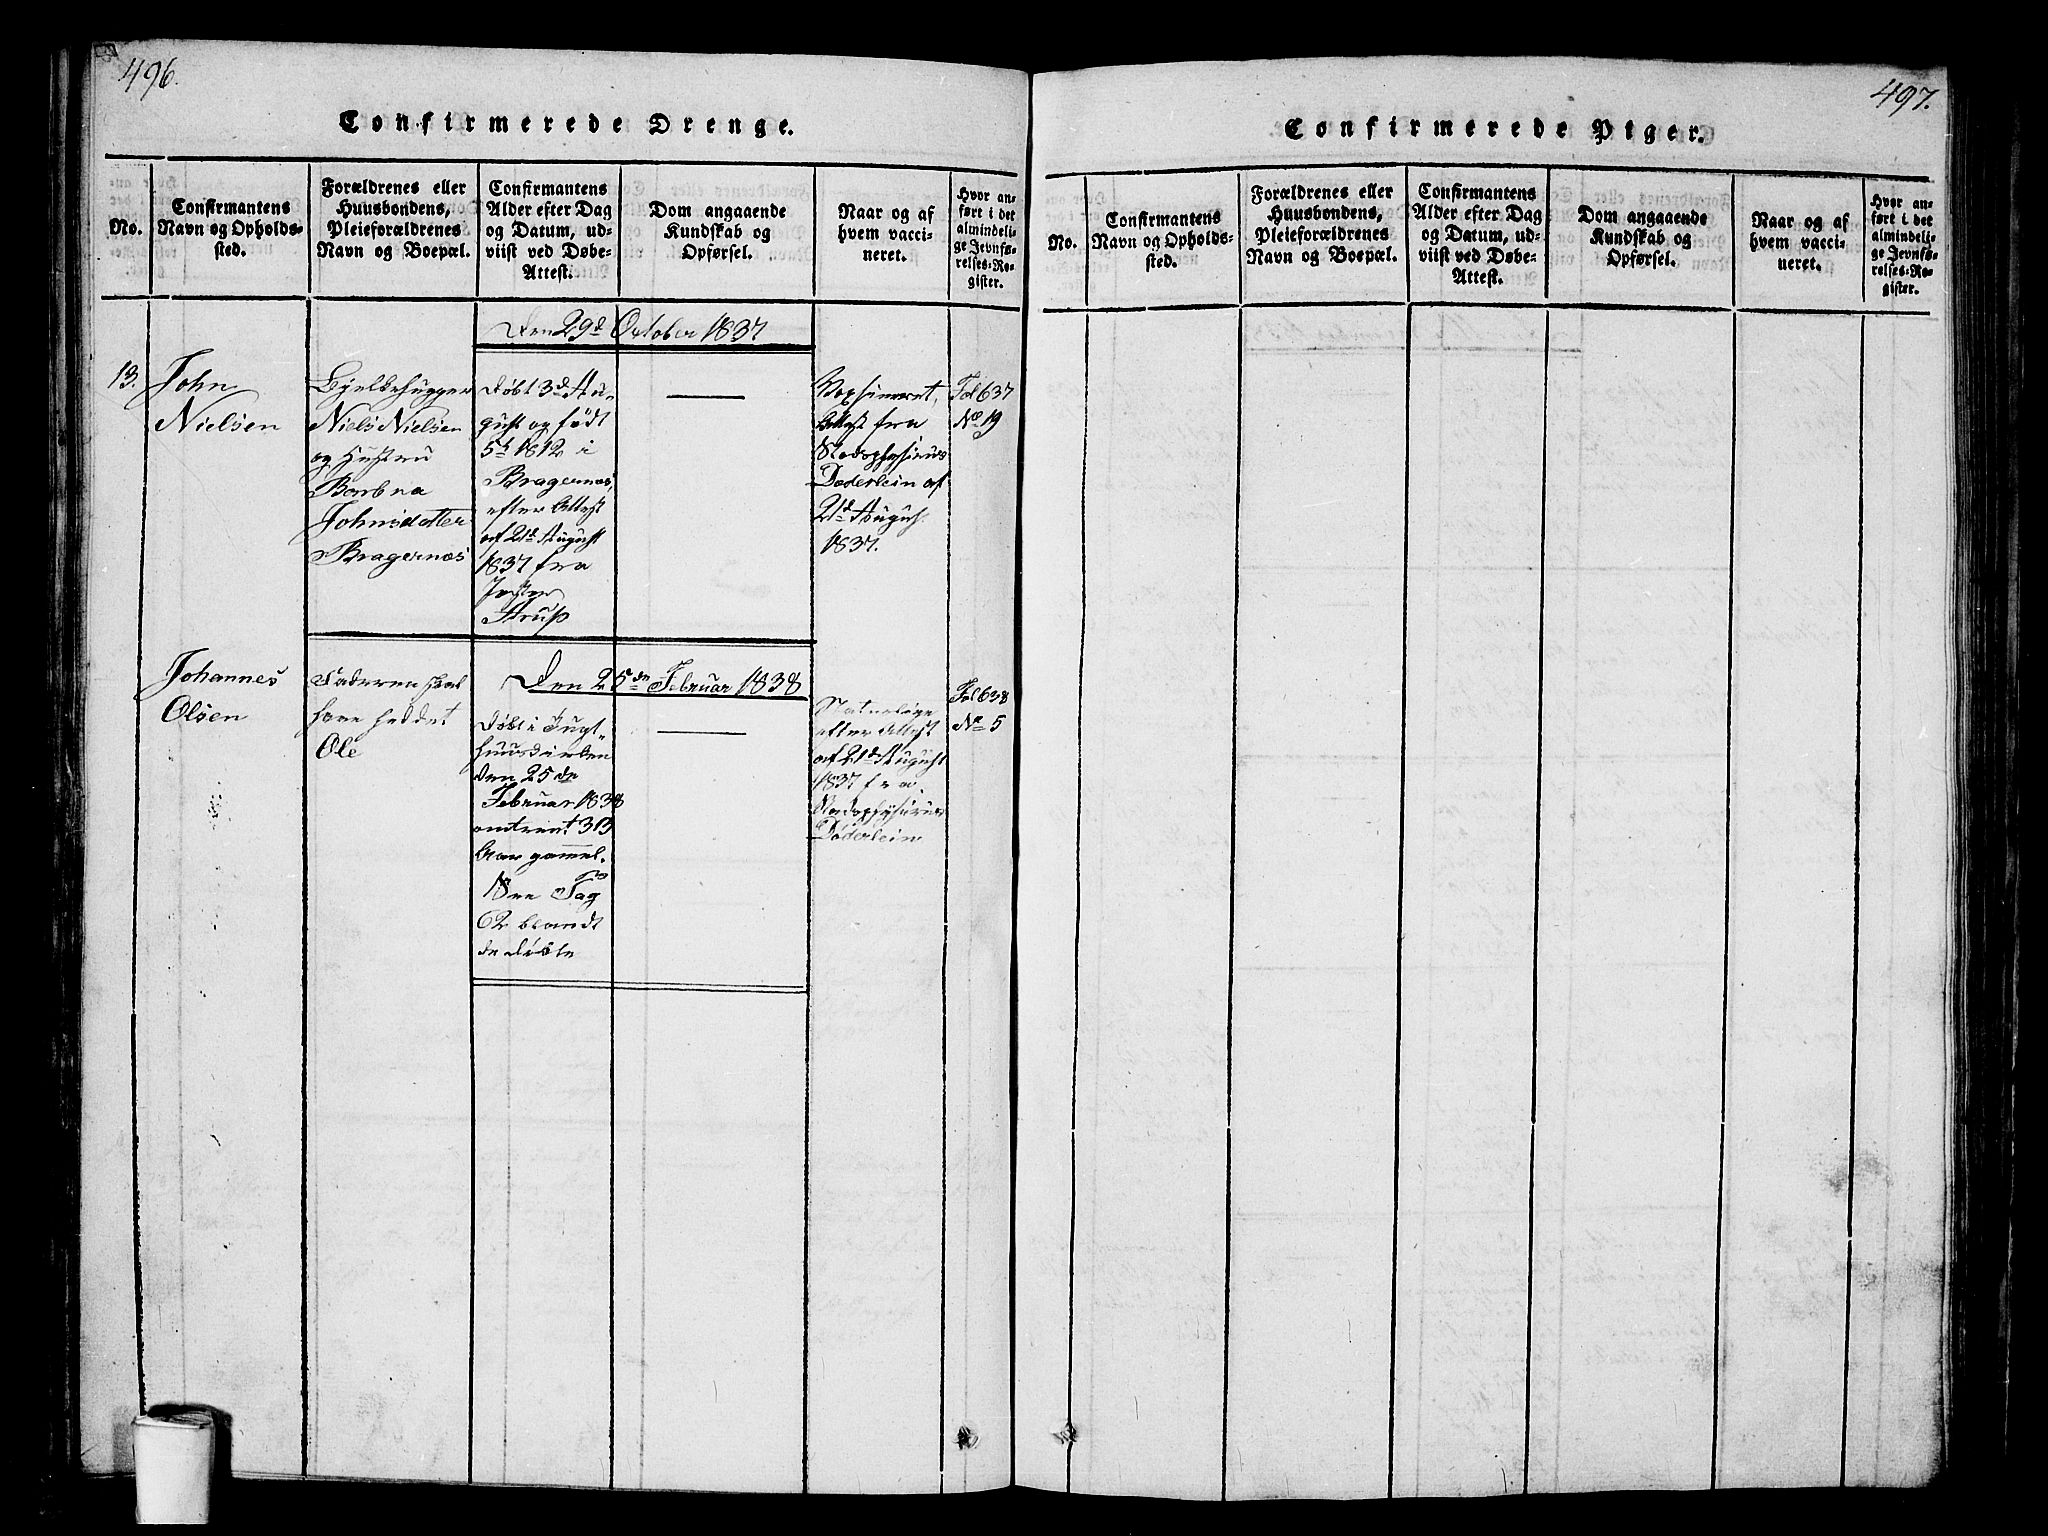 496.
Confirmerede Drenge.
No.
Confirmantens
Navn og Opholds-
sted.
Forældrenes eller
Huusbondens,
Pleieforældrenes
Navn og Boepæl.
Confirmantens
Alder efter Dag
og Datum, ud-
viist ved Døbe-
Attest.
Dom angaaende
Kundskab og
Opførsel.
Naar og af
hvem vacci-
neret.
Hvor an-
ført i det
almindeli-
ge Jevnfø-
relses-Re-
gister.
Den 29d October 1837
13.
John
Nielsen
Bjelkehugger
Niels Nielsen
og Hustru
Johnsdatter
Bragernæs
Døbt 3d Au-
gust og født
1812 i
Bragernæs,
efter Attest
af 21d August
1837 fra
Strup
Vaxsineret,
Attest fra
Stadsphysicus
Døderlein af
21d August
1837.
Fol 637
No 19
Johannes
Olsen
Faderen skal
have heddet
Ole
Den 25de Februar 1838
Døbt i Tugt-
huuskirken
den 25de
Februar 1838
omtrent 33
Aar gammel.
See Pag
62 blandt
de døbte
efter Attest
af 21d August
1837 fra
Stadsphysicus
Døderlein
Fol 638
No 5
497.
Confirmerede Piger.
No.
Confirmantens
Navn og Opholds-
sted.
Forældrenes eller
Huusbondens,
Pleieforældrenes
Navn og Boepæl.
Confirmantens
Alder efter Dag
og Datum, ud-
viist ved Døbe-
Attest.
Dom angaaende
Kundskab og
Opførsel.
Naar og af
hvem vacci-
neret.
Hvor an-
ført i det
almindeli-
ge Jevnfø-
relses-Re-
gister.